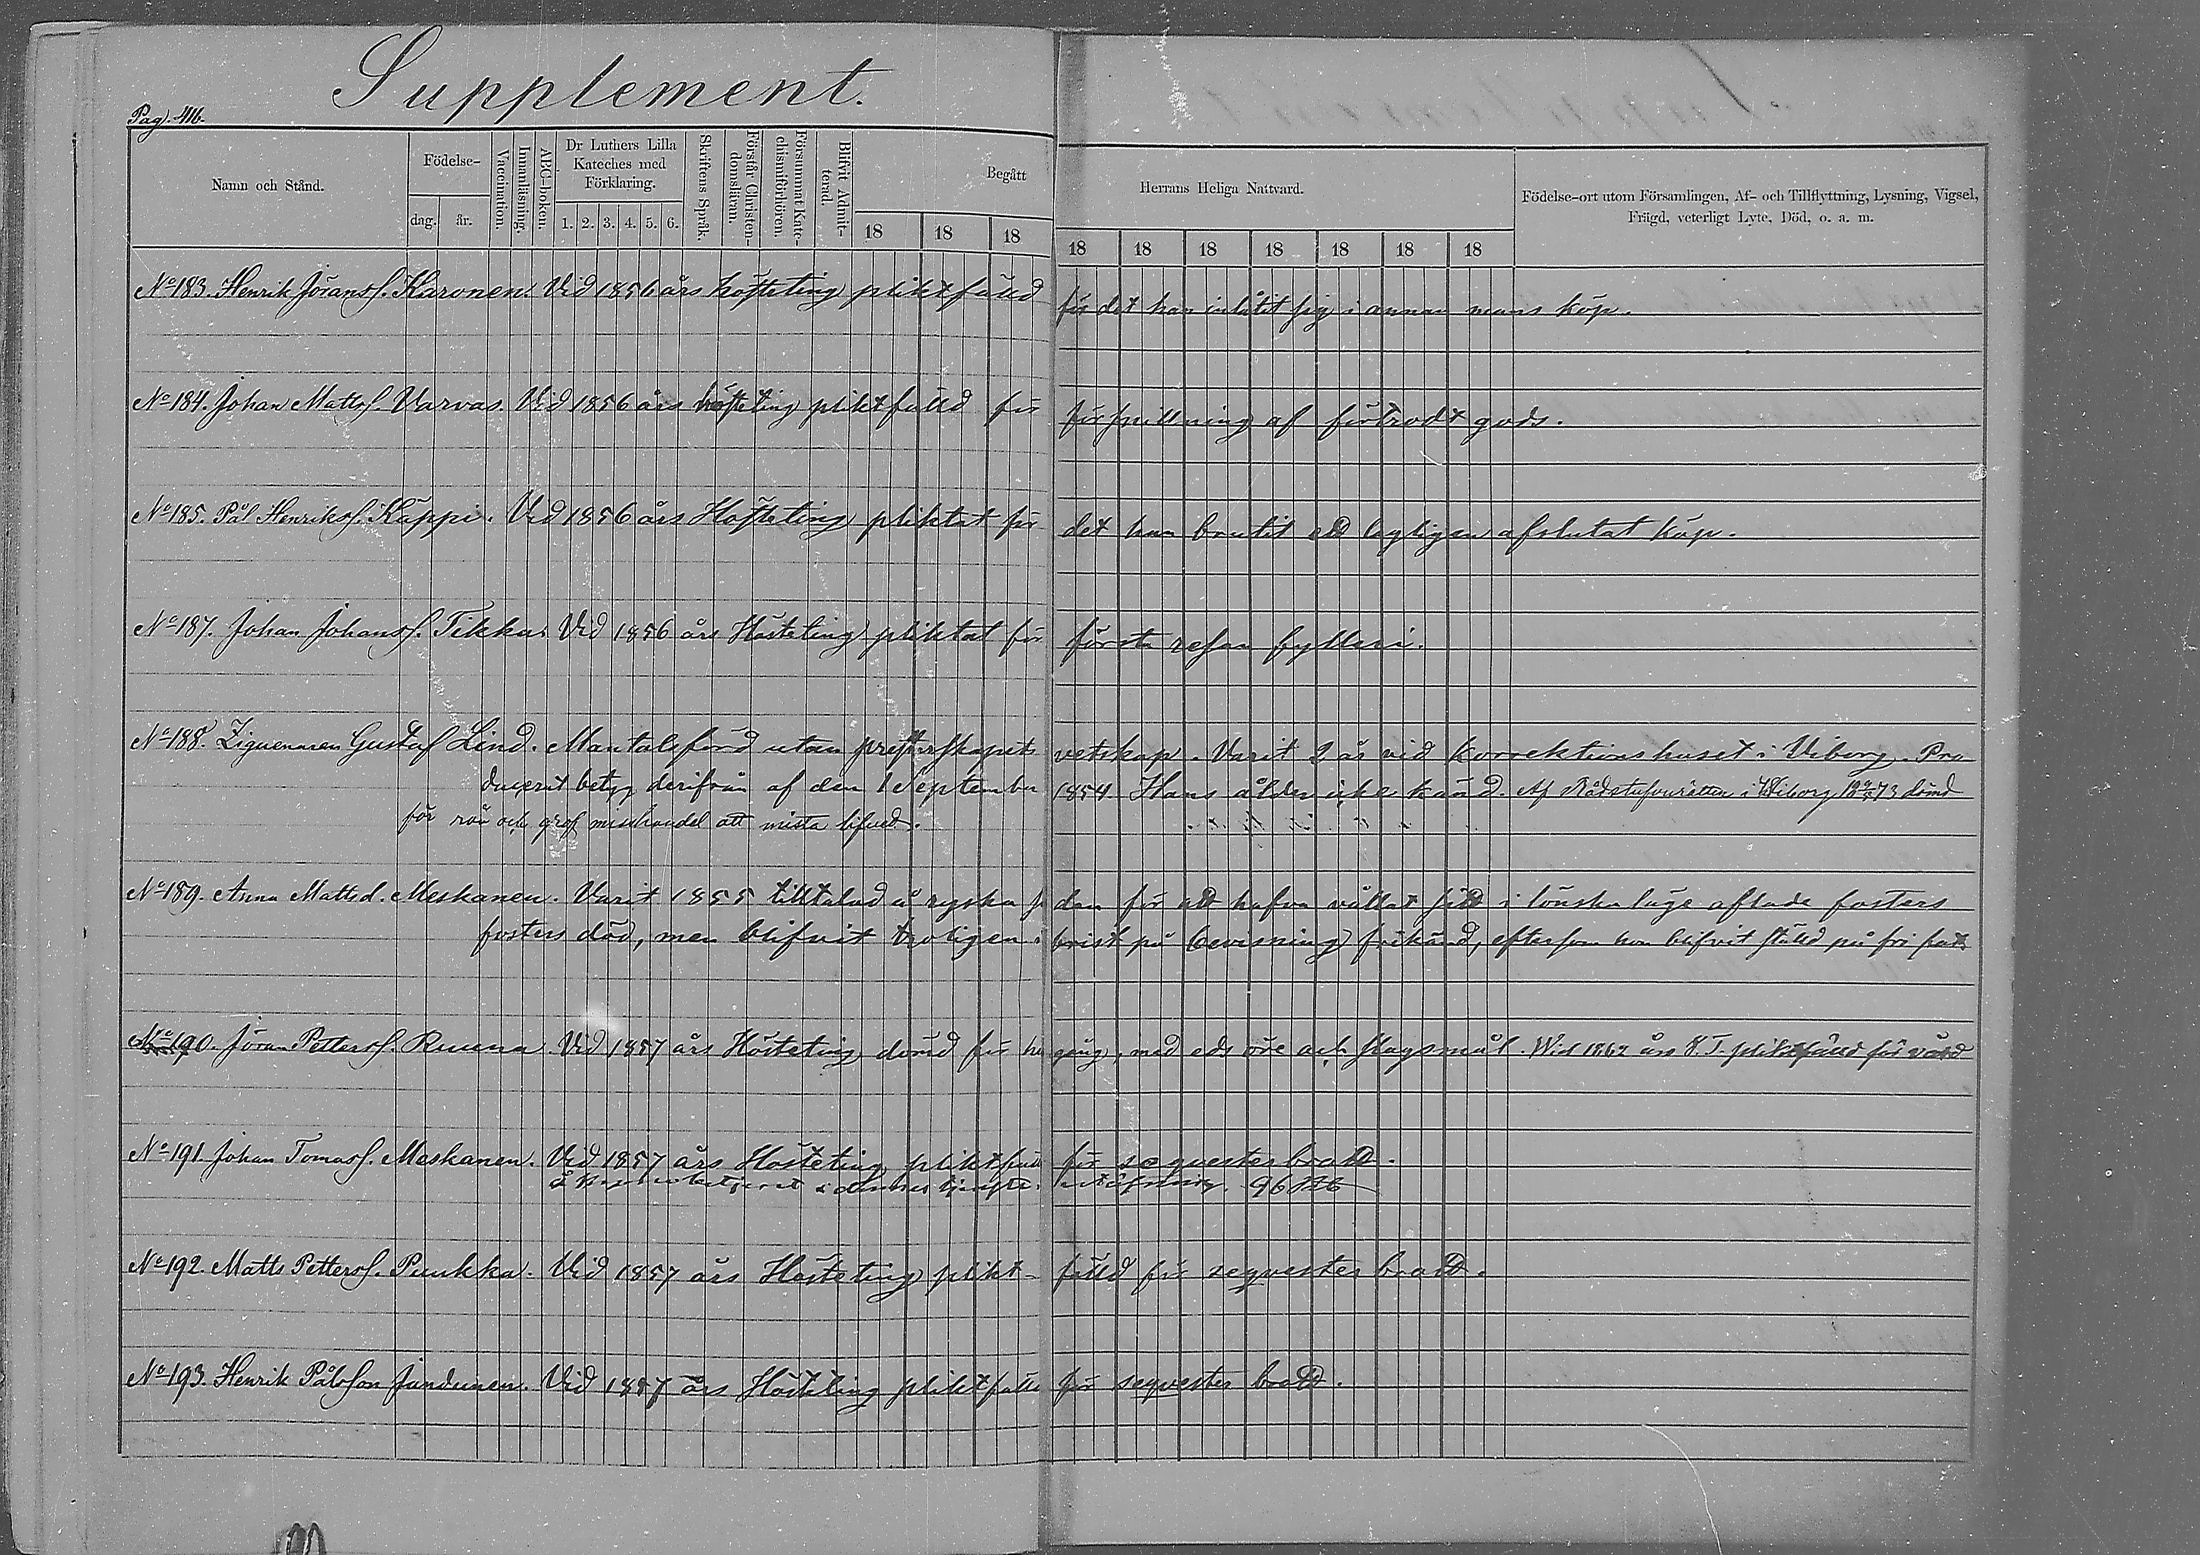 Supplement.
Pag. 416.
Namn och Stånd.
Födelse-
dag.
år.
Vaccination.
Innanläsning.
ABC-boken.
Dr Luthers Lilla
Kateches med
Förklaring.
1. 2. 3. 4. 5. 6.
Skriftens Språk.
Förstår Christen-
domsläran.
Försummat Kate-
chismiförhören.
Blifvit Admit-
terad.
Begått
Herrans Heliga Nattvard.
18 18 18 18 18 18 18 18 18 18
Födelse-ort utom Församlingen, Af- och Tillflyttning, Lysning, Vigsel,
Frägd, veterligt Lyte, Död, o. a. m.
No 183. Henrik Jöranss. Karonen. Vid 1856 års hösteting pliktfälld för det han inlåtit sig i annan mans köp.
No 184. Johan Mattss. Varvas. Vid 1856 års hösteting pliktfälld för förspillning af förtrodt gods.
No 185. Pål Henrikss. Käppi. Vid 1856 års Hösteting pliktat för det han brutit ett lagligen afslutat köp.
No 187. Johan Johanss. Tikka. Vid 1856 års Hösteting pliktat för första resan fylleri.
No 188. Ziguenaren Gustaf Lind. Mantalsförd utan presterskapets vetskap. Varit 2 år vid korrektionshuset i Viborg. Pro-
ducerat betyg derifrån af den 1 September 1854. Hans ålder icke känd. Af Rådstufvurätten i Wiborg 73 dömd
för rån och grof misshandel att mista lifvet.
No 189. Anna Mattsd. Meskanen. Varit 1855 tilltalad å ryska dan för att hafva vållat sitt i lönska läge aflade fosters
fosters död, men blifvit troligen brist på bevisning frikänd, eftersom hon blifvit ställd på fri fot.
No 190. Jöran Petterss. Ruuena. Vid 1857 års Hösteting dömd för gång, med eds öre och slagsmål. Wid 1862 års H.T. pliktfälld för våld
No 191. Johan Tomass. Meskanen. Vid 1857 års Hösteting pliktfälld för seqvesterbrott.
No 192. Matts Petterss. Puukka. Vid 1857 års Hösteting plikt- fälld för seqvesterbrott.
No 193. Henrik Pålsson Jundunen. Vid 1857 års Hösteting pliktfälld för seqvester brott.